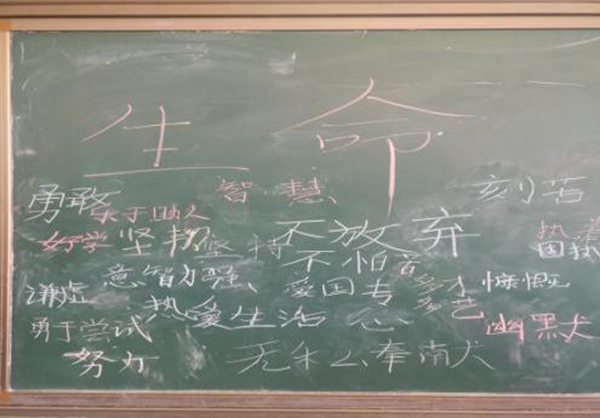 生命
勇敢 智慧 刻苦
乐于助人
好学 坚韧 坚持 不放弃
不怕苦
谦虚 意智力强 爱国 专心 多才多艺 慷慨
勇于尝试 热爱生活 幽默
努力 无私奉献